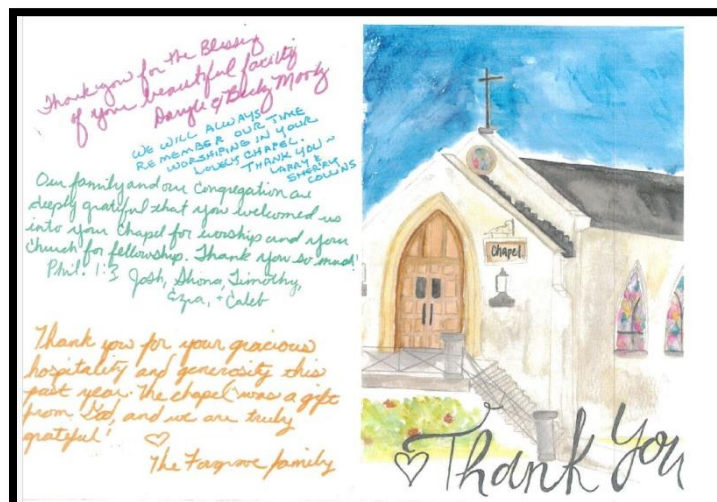 Thank you for the Blessing
of your beautiful facility
Daryle & Becky Moody
WE WILL ALWAYS
REMEMBER OUR TIME
WORSHIPING IN YOUR
LOVELY CHAPEL.
THANK YOU~
LARRY &
SHERRY
COLLINS
Our family and our Congregation are
deeply grateful that you welcomed us
into your Chapel for worship and your
Church for fellowship. Thank you so much!
Phil. 1:3 Josh, Shona, Timothy,
Ezra, + Caleb
Thank you for your gracious
hospitality and generosity this
past year. The chapel was a gift
from God, and we are truly
grateful!
The family
Chapel
Thank You